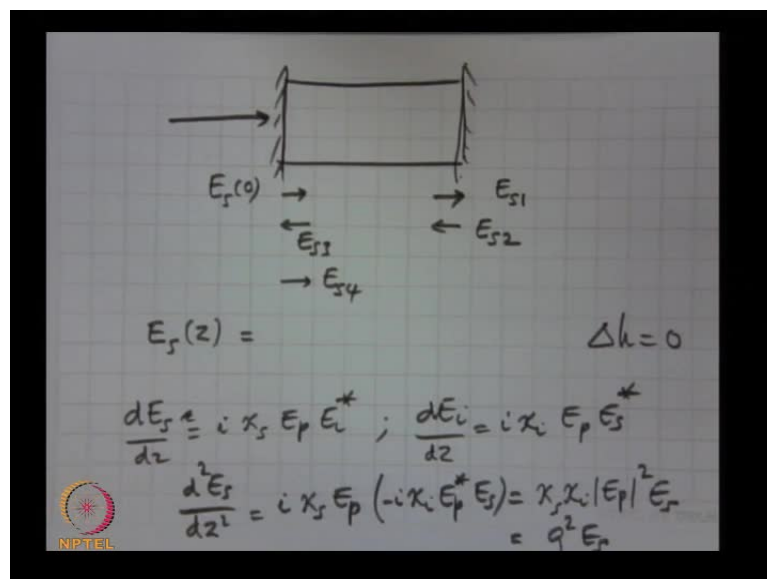 E_s(0) → → E_s1
← E_s3 ← E_s2
→ E_s4
E_s(z) = Δk = 0
dE_s/dz = i κ_s E_p E_i^* ; dE_i/dz = i κ_i E_p E_s^*
d²E_s/dz² = i κ_s E_p (-i κ_i E_p^* E_s) = κ_s κ_i |E_p|² E_s
= g² E_s
NPTEL